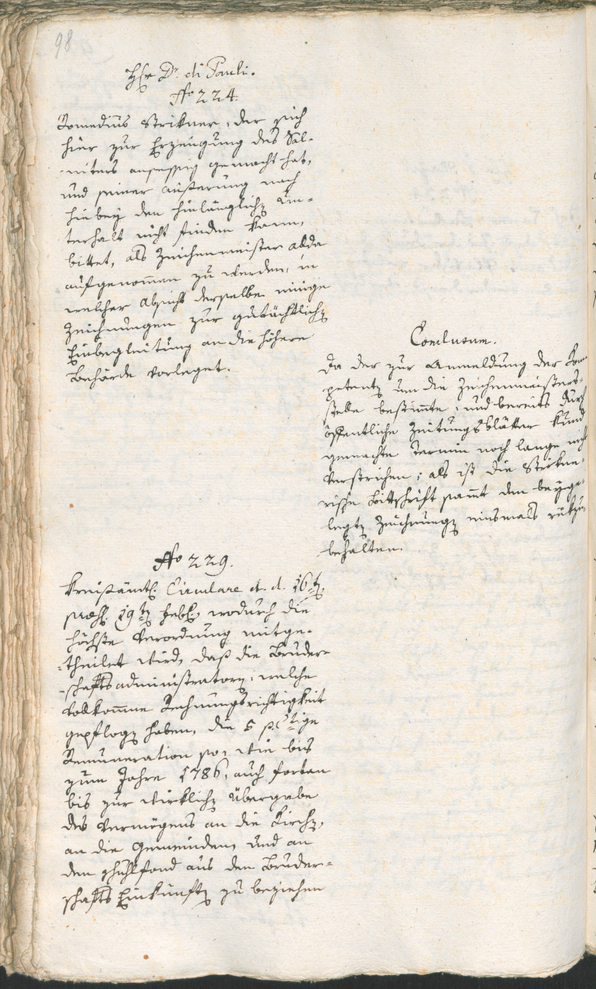 98
Hr. Dr. di Pauli.
No 224.
Romedius Strikner, der sich
hier zur Erzeugung des Sal-
niters ansessig gemacht hat,
und seiner äusserung nach
hiebey den hinlänglichen Un-
terhalt nicht finden kann,
bittet, als Zeichenmeister allda
aufgenommen zu werden, in
welcher absicht derselbe einige
Zeichnungen zur gutächtlichen
Einbegleitung an die höhere
Behörde vorleget.
Conclusum.
Da der zur Anmeldung der Kom-
petenten um die Zeichenmeisters-
stelle bestimmte, und bereits durch
öffentliche Zeitungsblätter kund
gemachte Termin noch lange nicht
verstrichen; als ist die Strikne-
rische Bittschrift sammt den beyge-
legten Zeichnungen einsmals rükzu-
behalten.
No 229.
Kreisämtl. Circulare d. d. 16ten
praes. 19ten hebl., wodurch die
höchste Verordnung mitge-
theilet wird, daß die Bruder-
schaftsadministratoren, welche
vollkommene Rechnungsrichtigkeit
gepflogen haben, die 5 pCtige
Remuneration so, wie bis
zum Jahre 1786, auch fortan
bis zur wirklichen Übergabe
des Vermögens an die Kirchen,
an die Gemeinden, und an
den Schulfond aus den Bruder-
schafts Einkünften zu beziehen